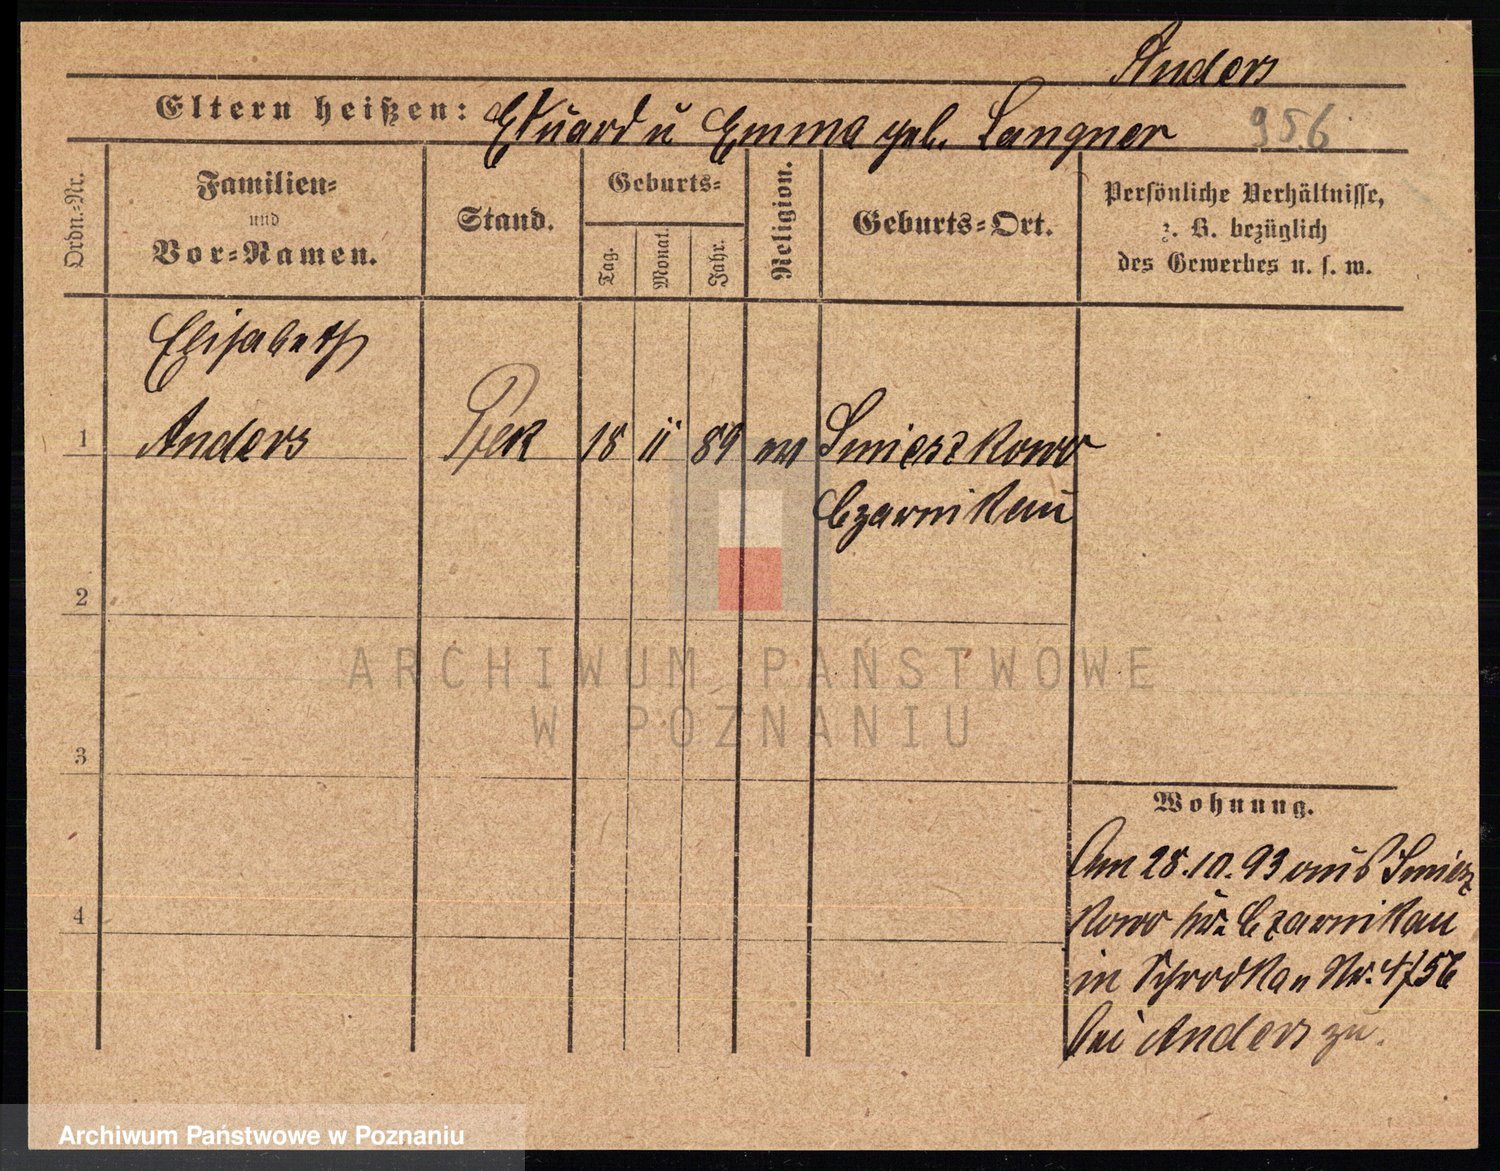 Anders
Eltern heißen: Eduard u Emma geb. Langner 956
Ordn.-Nr.
Familien-
und
Vor-Namen.
Stand.
Geburts-
Tag.
Monat.
Jahr.
Religion.
Geburts-Ort.
Persönliche Verhältnisse,
z. B. bezüglich
des Gewerbes u. s. w.
Elisabeth
1 Anders 18 11 89 ev Smieszkowo
Czarnikau
2
ARCHIWUM PAŃSTWOWE
W POZNANIU
3
Wohnung.
Am 28.10.93 aus Smiesz
kowo Czarnikau
4
in Schrodka Nr. 4/5
bei Anders zu.
Archiwum Państwowe w Poznaniu